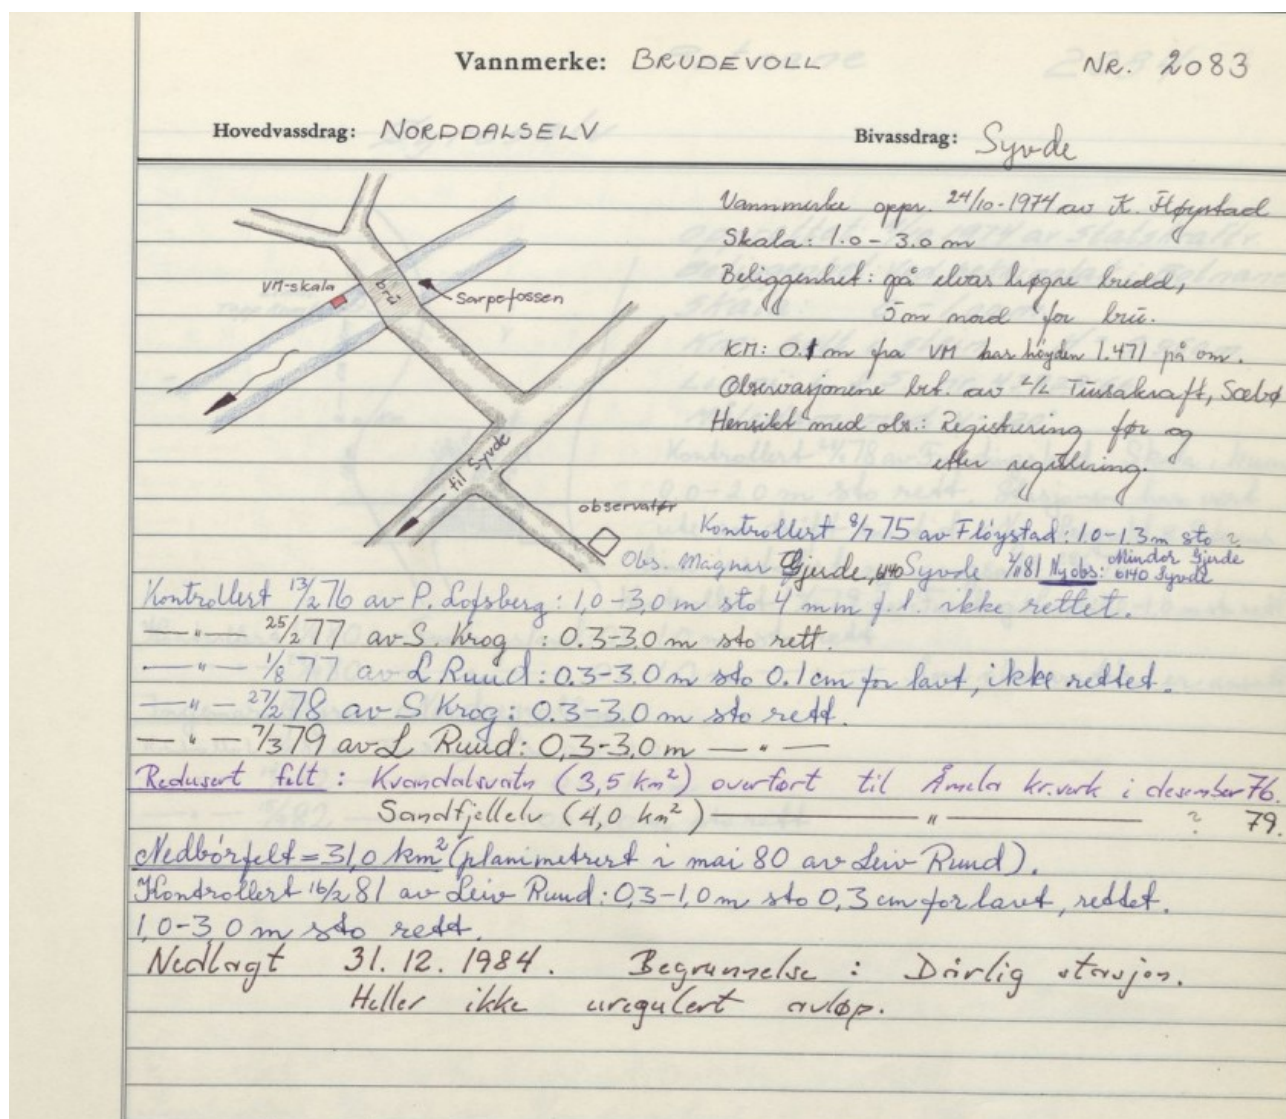 Vannmerke: BRUDEVOLL NR. 2083
Hovedvassdrag: NORDDALSELV Bivassdrag: Syvde
VM-skala
bru
Sarpefossen
til Syvde
observatør
Vannmerke oppr. 24/10-1974 av K. Fløystad
Skala: 1.0 - 3.0 m
Beliggenhet: på elvas høgre bredd,
5 m nord for bru.
KM: 0.1 m fra VM har høyden 1.471 på vm.
Observasjonene bet. av L/L Tussakraft, Sæbø
Hensikt med obs.: Registrering før og
etter regulering.
Kontrollert 8/7 75 av Fløystad: 1.0-1.3 m sto ?
Obs. Magnar Gjerde, 6140 Syvde 2/1181 Ny obs: Mindor Gjerde
6140 Syvde
Kontrollert 13/2 76 av P. Lofsberg: 1,0-3,0 m sto 4 mm f.l. ikke rettet.
— " — 25/2 77 av S. Krog : 0.3-3.0 m sto rett.
— " — 1/8 77 av L Ruud: 0.3-3.0 m sto 0.1 cm for lavt, ikke rettet.
— " — 27/2 78 av S Krog: 0.3-3.0 m sto rett.
— " — 7/3 79 av L Ruud: 0,3-3,0 m — " —
Redusert felt: Kvandalsvatn (3,5 km²) overført til Åmela kr.verk i desember 76.
Sandfjellelv (4,0 km²) — " — ? 79.
Nedbørfelt = 31,0 km² (planimetrert i mai 80 av Leiv Ruud).
Kontrollert 16/2 81 av Leiv Ruud: 0,3-1,0 m sto 0,3 cm for lavt, rettet.
1,0-3,0 m sto rett.
Nedlagt 31.12.1984. Begrunnelse: Dårlig stasjon.
Heller ikke uregulert avløp.